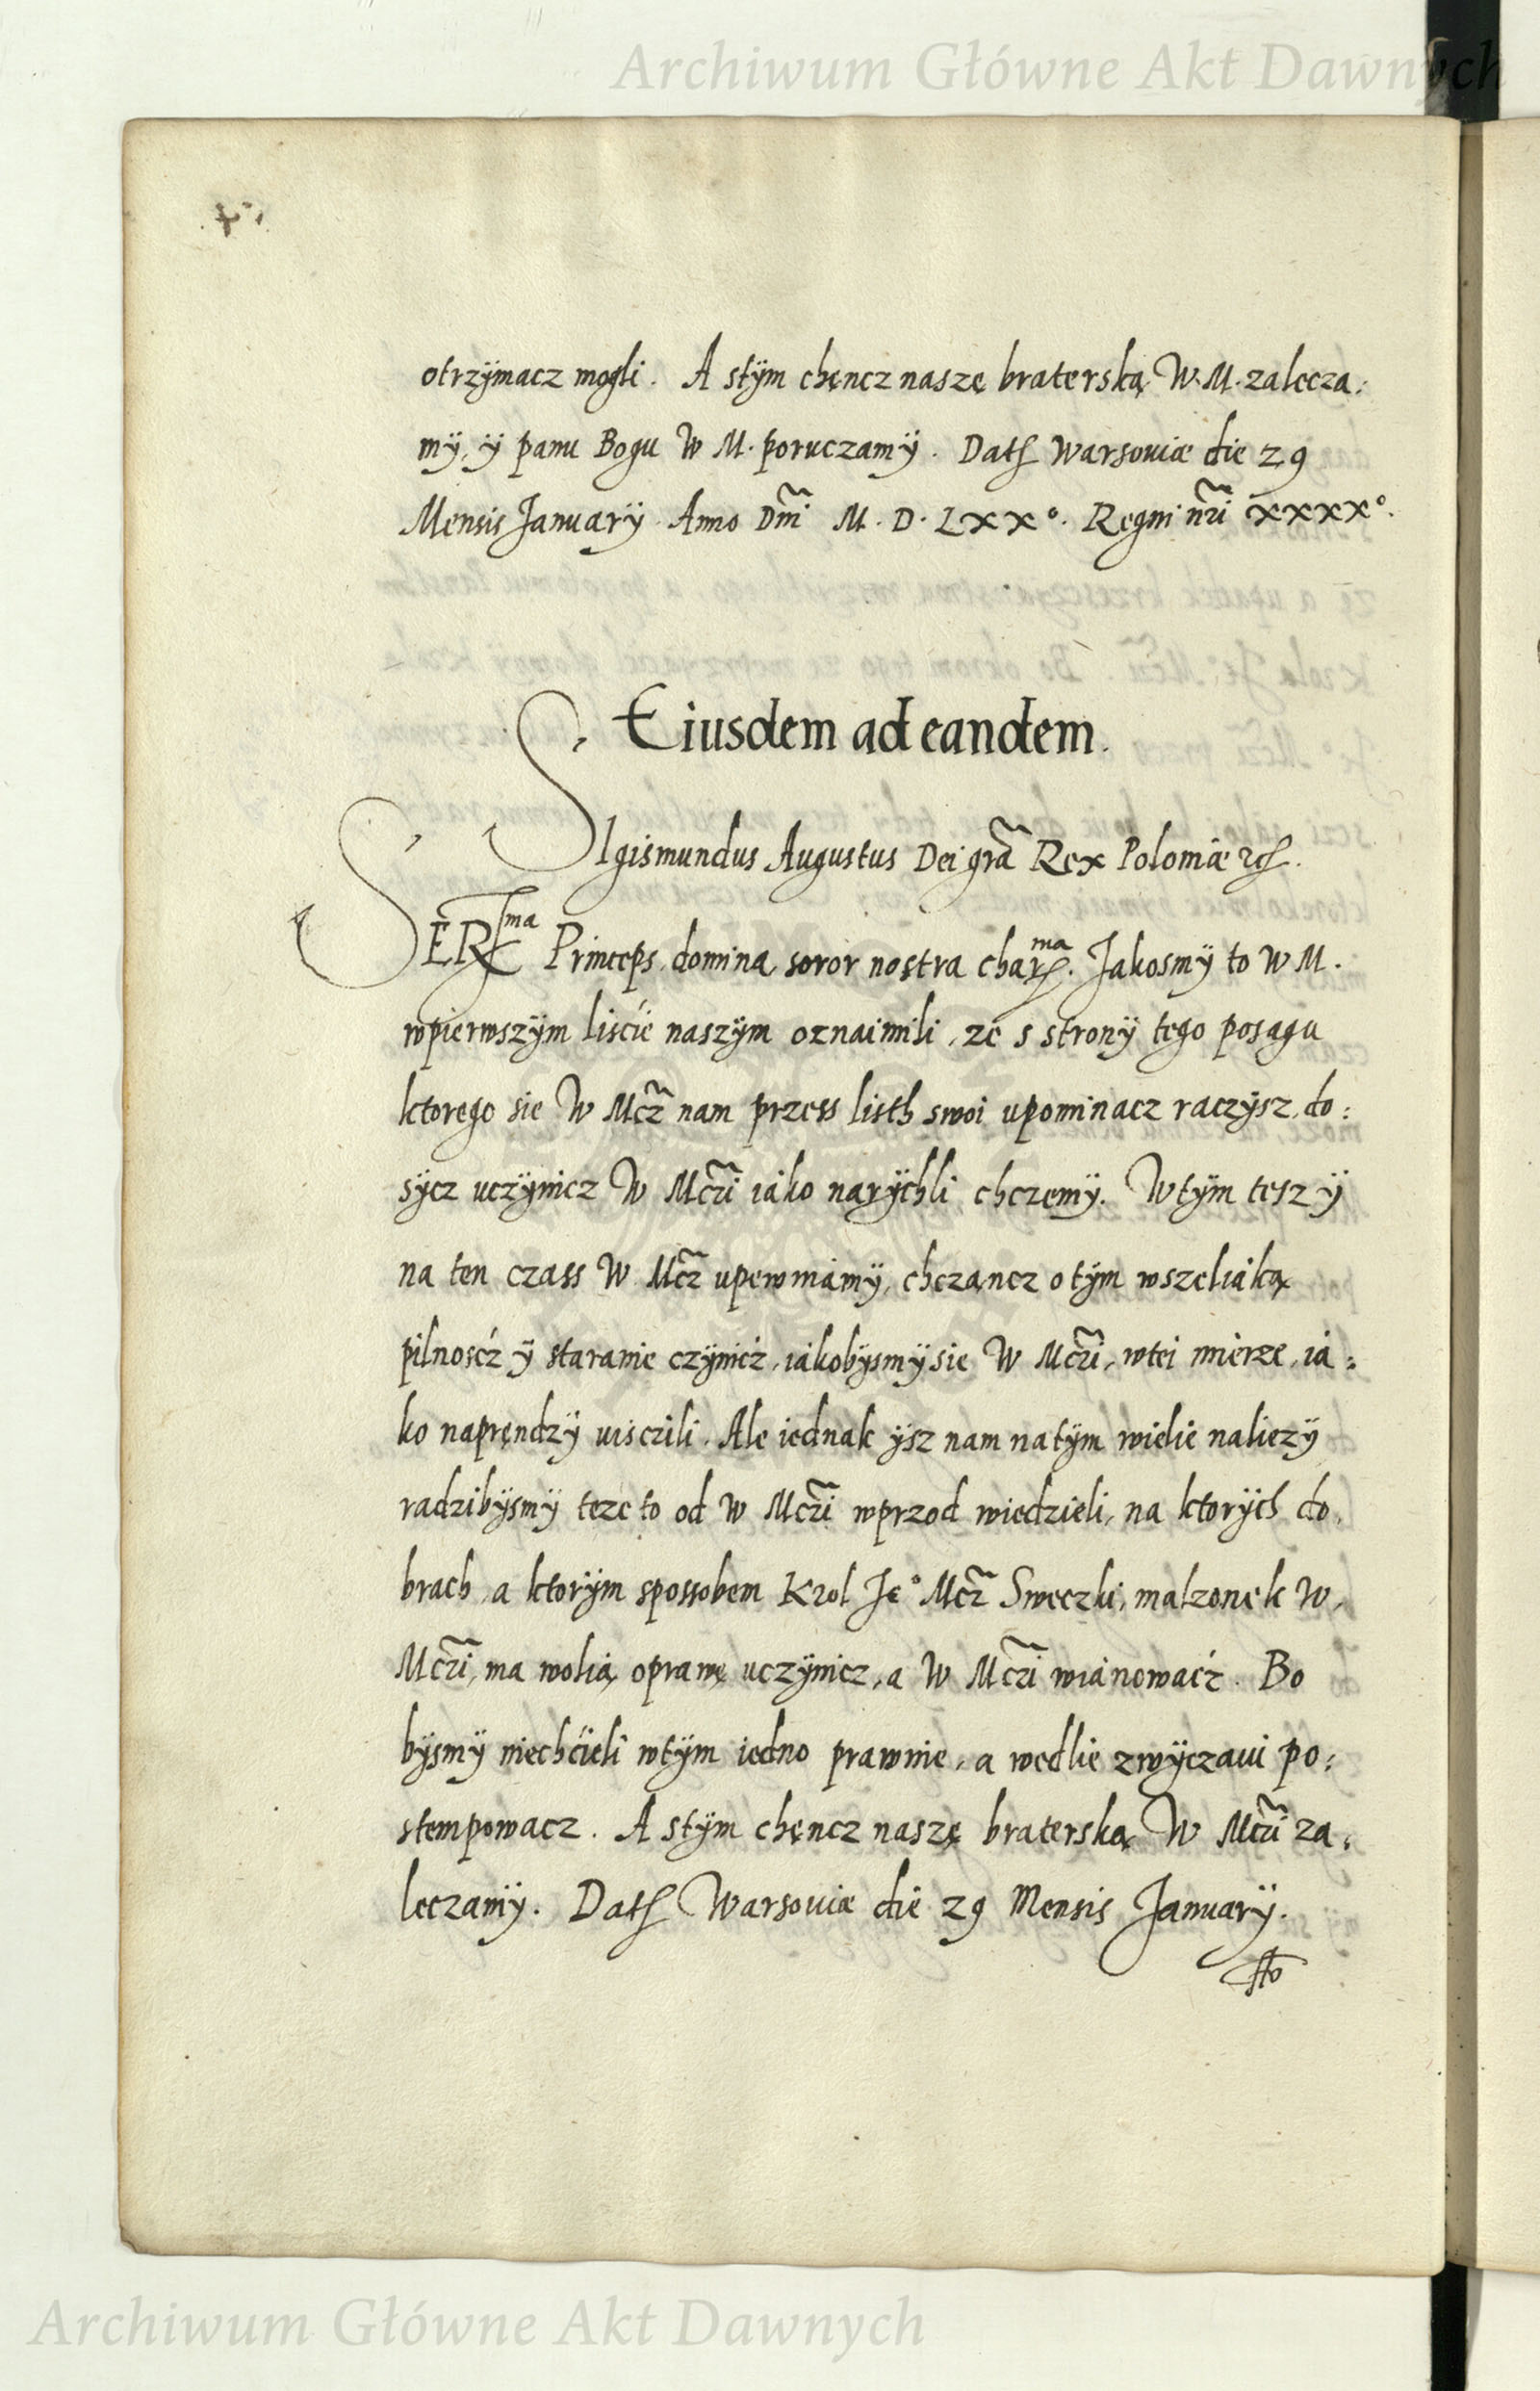 Archiwum Główne Akt Dawnych
otrzÿmacz mogli. A stÿm chęncz naszę braterską W. M. zalecza:
mÿ, ÿ panu Bogu W M. poruczamÿ. Dat Warsouiæ die 29
Mensis Januarÿ Anno Dm̃i M. D. LXX°. Regni nr̃i XXXX°.
Eiusdem ad eandem.
SIgismundus Augustus Dei gr̃a Rex Poloniæ
SERma Princeps, domina, soror nostra charma. Jakosmÿ to W M.
wpierwszÿm liscie naszÿm oznaimili, ze s stronÿ tego posagu
ktorego sie W Mcz̃ nam przess listh swoi upominacz raczÿsz, do:
sÿcz uczÿnicz W Mcz̃i iáko narÿchli chczemÿ. W tÿm tesz ÿ
na ten czass W Mcz̃ upewniamÿ, chcząncz o tÿm wszeliáką
pilnoscż ÿ staranie czÿnicż, iákobÿsmÿ sie W Mcz̃i, wtei mierze, iá:
ko napręndzÿ uisczili. Ale iednak ÿsz nam natÿm wielie naliezÿ
radzibÿsmÿ teze to od W Mcz̃i wprzod wiedzieli, na ktorÿch do:
brach, a ktorÿm spossobem Krol Je° Mcz̃ Sweczki, malzonek W,
Mcz̃i, ma wolią oprawę uczÿnicz, a W Mcz̃i wiánowaćz. Bo
bÿsmÿ niechcieli wtÿm iedno prawnie, a wedlie zwÿczaui po:
stempowacz. A stÿm chęncz naszę braterską W Mcz̃i za,
leczamÿ. Dat Warsouiæ die 29 Mensis Januarÿ.
Archiwum Główne Akt Dawnych